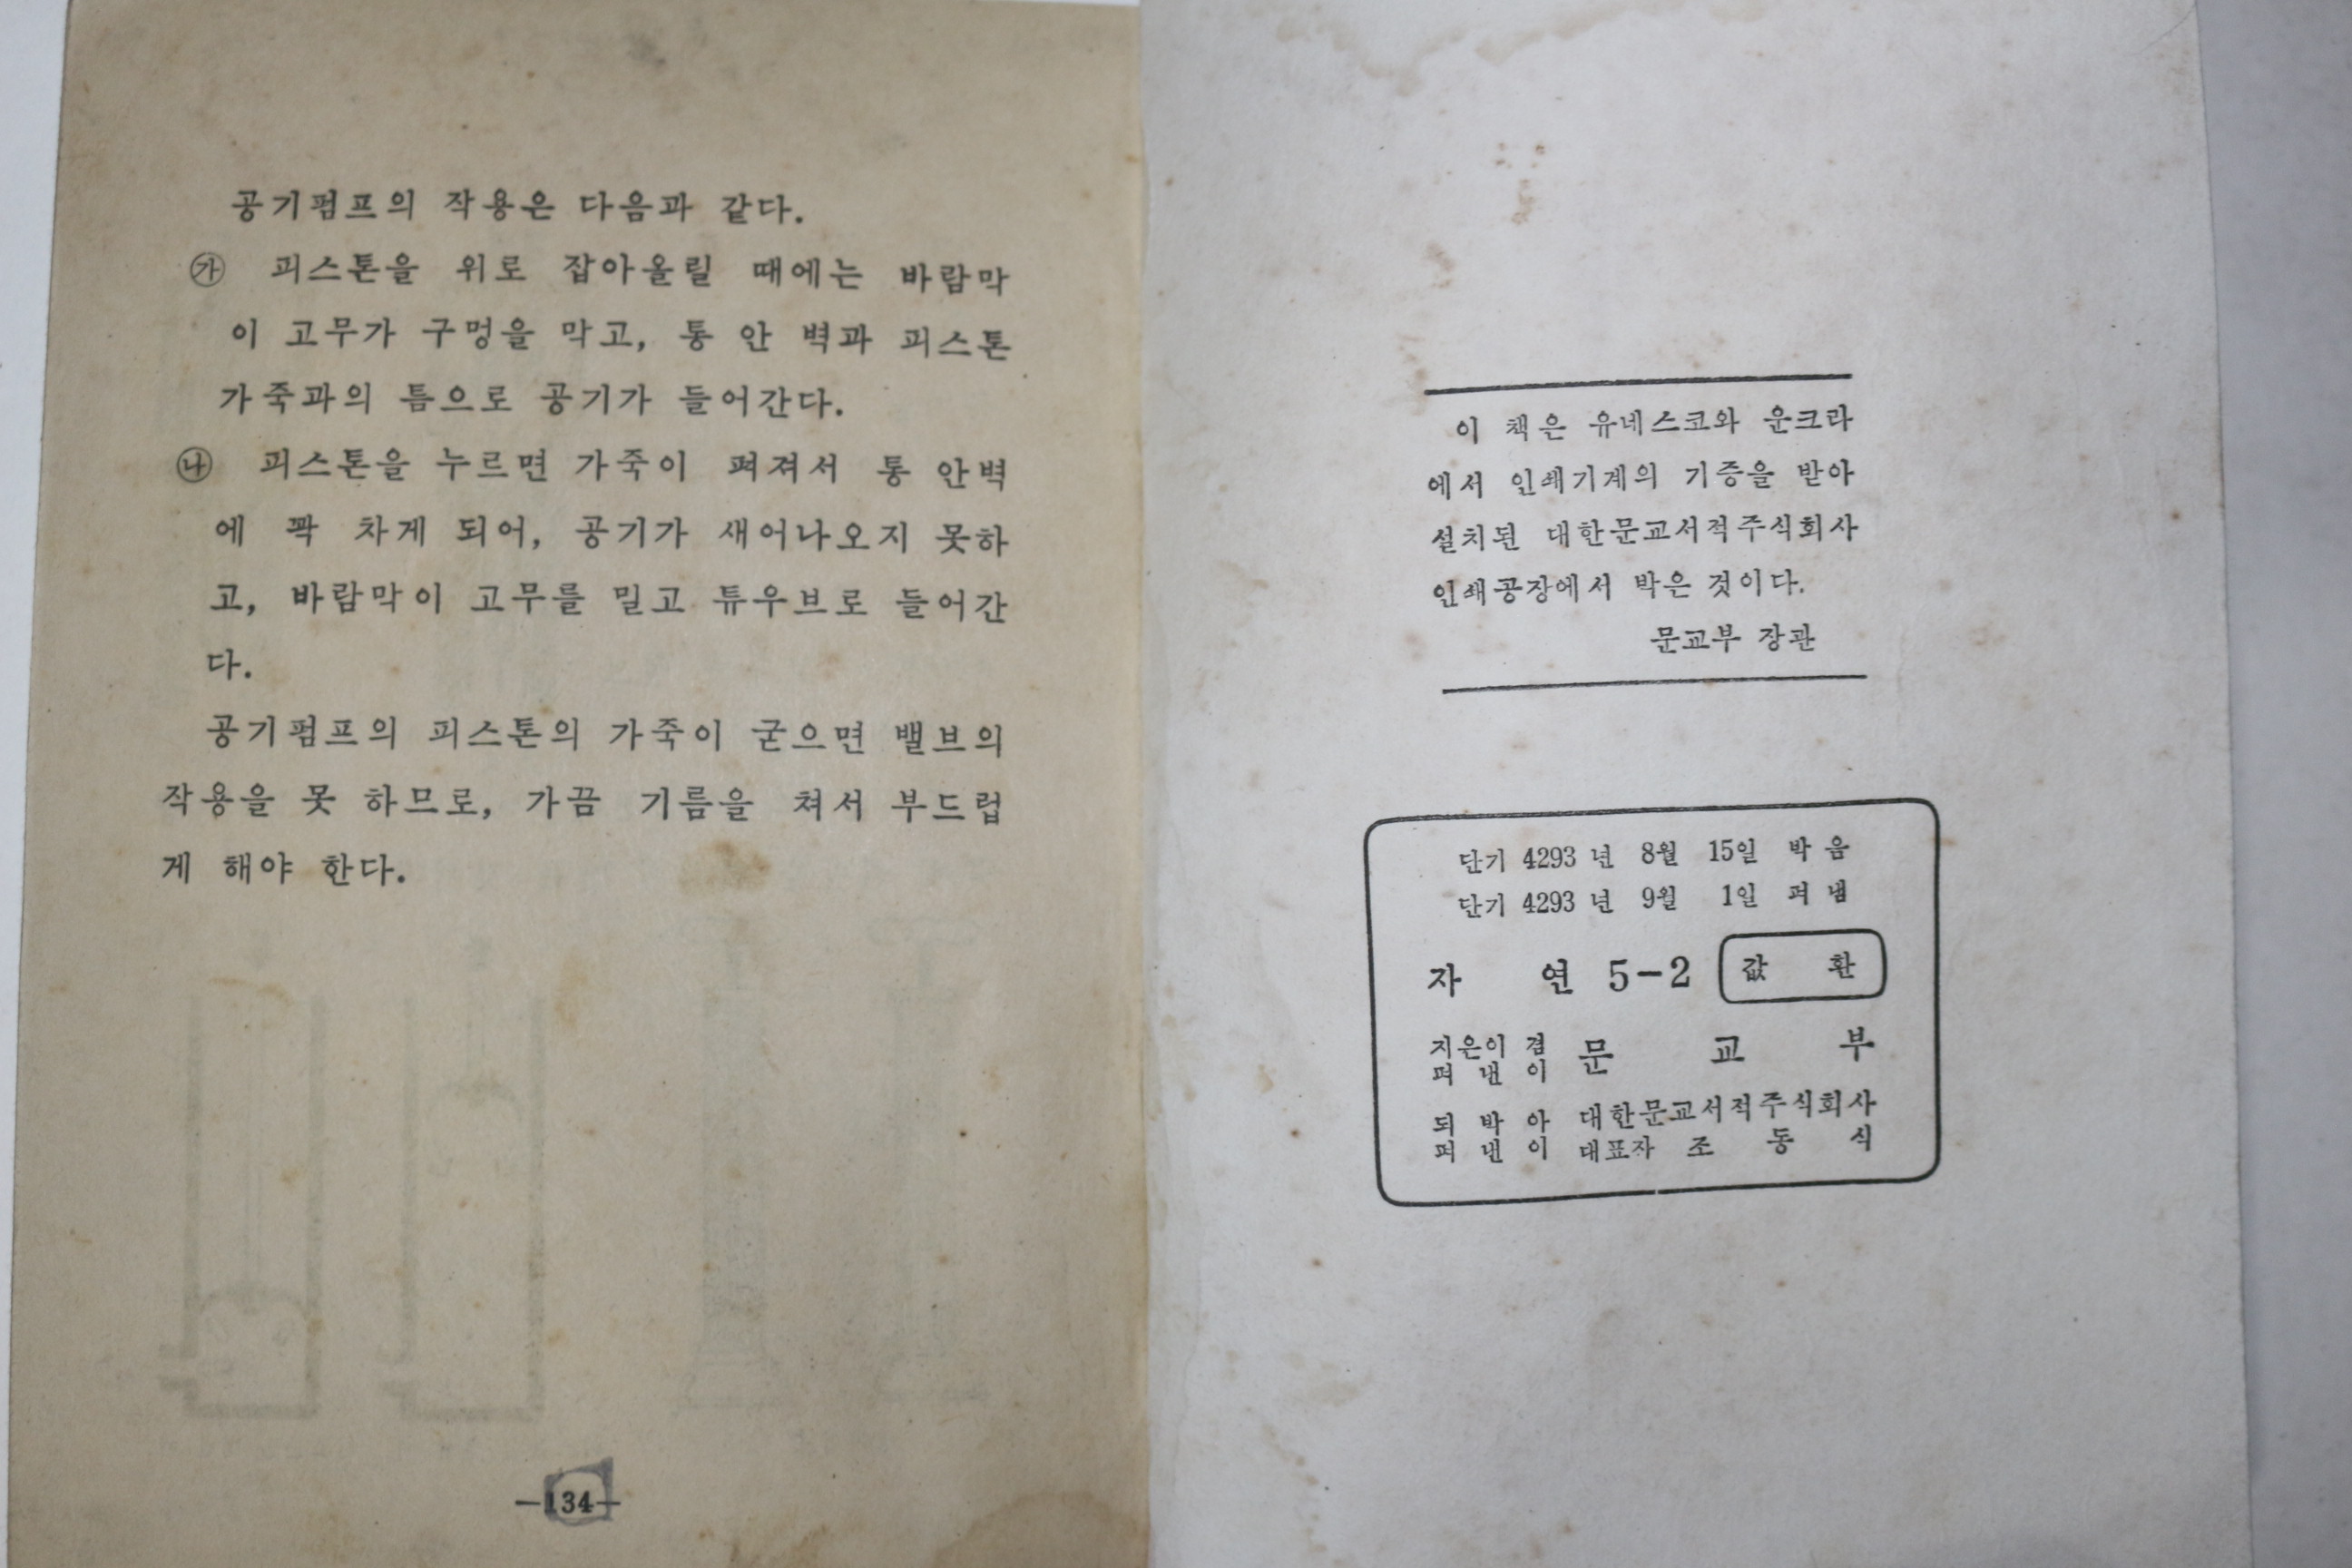 공기펌프의 작용은 다음과 같다.
㉮ 피스톤을 위로 잡아올릴 때에는 바람막
이 고무가 구멍을 막고, 통 안 벽과 피스톤
가죽과의 틈으로 공기가 들어간다.
㉯ 피스톤을 누르면 가죽이 펴져서 통 안벽
에 꽉 차게 되어, 공기가 새어나오지 못하
고, 바람막이 고무를 밀고 튜우브로 들어간
다.
공기펌프의 피스톤의 가죽이 굳으면 밸브의
작용을 못 하므로, 가끔 기름을 쳐서 부드럽
게 해야 한다.
-134-
이 책은 유네스코와 운크라
에서 인쇄기계의 기증을 받아
설치된 대한문교서적주식회사
인쇄공장에서 박은 것이다.
문교부 장관
단기 4293 년 8월 15일 박음
단기 4293 년 9월 1일 펴냄
자 연 5-2 값 환
지은이 겸
펴 낸 이 문 교 부
되 박 아 대한문교서적주식회사
펴 낸 이 대표자 조 동 식